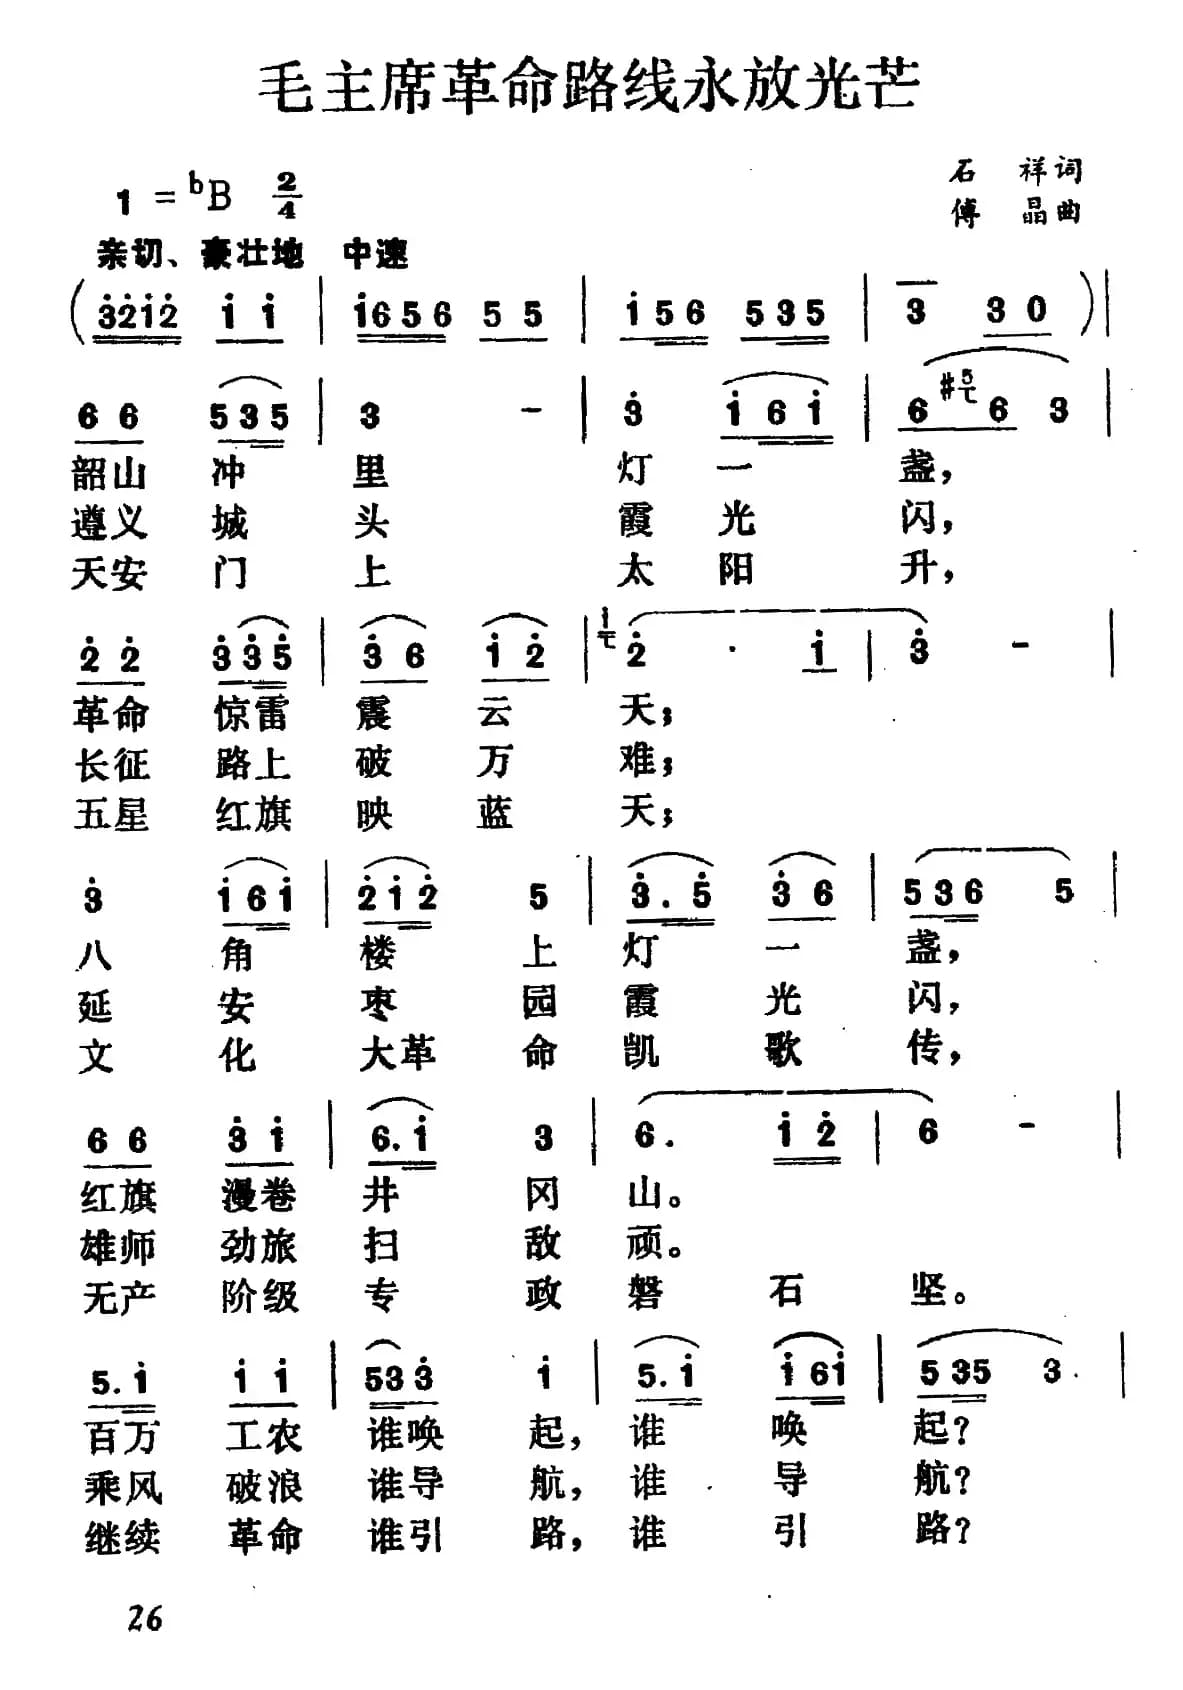 毛主席革命路线永放光芒
石 祥词
傅 晶曲
1 = ᵇB 2/4
亲切、豪壮地 中速
(3̇2̇1̇2̇ 1̇ 1̇ | 1̇656 5 5 | 1̇56 535 | 3 3 0 )|
6 6 535 | 3 - | 3̇ 1̇61̇ | 6 #5 6 3 |
韶山 冲 里 灯 一 盏,
遵义 城 头 霞 光 闪,
天安 门 上 太 阳 升,
2̇ 2̇ 3̇3̇5̇ | 3̇ 6 1̇ 2̇ | 1 2̇ · 1̇ | 3̇ - |
革命 惊雷 震 云 天;
长征 路上 破 万 难;
五星 红旗 映 蓝 天;
3̇ 1̇61̇ | 2̇1̇2̇ 5 | 3̇.5̇ 3̇ 6 | 536 5 |
八 角 楼 上 灯 一 盏,
延 安 枣 园 霞 光 闪,
文 化 大革 命 凯 歌 传,
6 6 3̇ 1̇ | 6.1̇ 3 | 6. 1̇ 2̇ | 6 - |
红旗 漫卷 井 冈 山。
雄师 劲旅 扫 敌 顽。
无产 阶级 专 政 磐 石 坚。
5.1̇ 1̇ 1̇ | 533̇ 1̇ | 5.1̇ 1̇61̇ | 535 3. |
百万 工农 谁唤 起, 谁 唤 起?
乘风 破浪 谁导 航, 谁 导 航?
继续 革命 谁引 路, 谁 引 路?
26